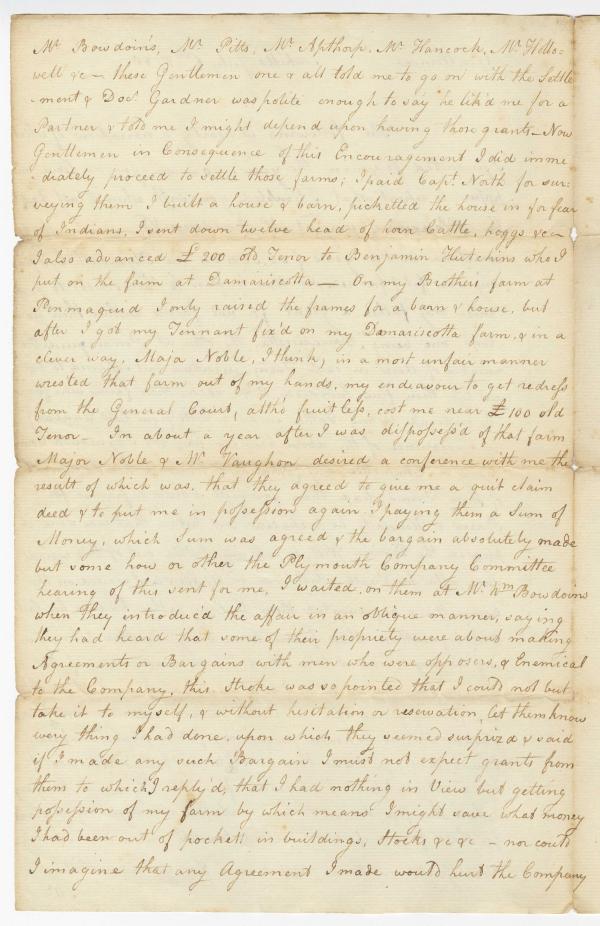 Mr Bowdoin's, Mr Pitts, Mr Apthorp, Mr Hancock, Mr Hollo=
well &c – these Gentlemen one & all told me to go on with the Settle
-ment & Docr Gardner was polite enough to say he lik'd me for a
Partner & told me I might depend upon having those grants – Now
Gentlemen in Consequence of this Encouragement I did imme
-diately proceed to settle those farms; I paid Capt. North for sur=
veying them I built a house & barn, picketted the house in for fear
of Indians, I sent down twelve head of horn Cattle, hoggs &c –
I also advanced £200 old Tenor to Benjamin Hutchins who I
put on the farm at Damariscotta – On my Brothers farm at
Penmaquid I only raised the frames for a barn & house, but
after I got my Tennant fix'd on my Damariscotta farm, & in a
clever way, Maja Noble, I think, in a most unfair manner
wrested that farm out of my hands, my endeavour to get redress
from the General Court, altho' fruitless, cost me near £100 old
Tenor. In about a year after I was dispossess'd of that farm
Major Noble & Mr Vaughon desired a conference with me the
result of which was, that they agreed to give me a quit claim
deed & to put me in possession again I paying them a Sum of
Money, which Sum was agreed & the bargain absolutely made
but some how or other the Plymouth Company Committee
hearing of this sent for me, I waited on them at Mr Wm Bowdoins
when they introduc'd the affair in an oblique manner, saying
they had heard that some of their propriety were about making
Agreements or Bargains with men who were opposers, & Enemical
to the Company, this Stroke was so pointed that I could not but
take it to myself, & without hesitation or reservation, let them know
every thing I had done, upon which they seemed surpriz'd & said
if I made any such Bargain I must not expect grants from
them to which I reply'd, that I had nothing in View but getting
possession of my farm by which means I might save what money
I had been out of pockett in buildings, Stocks &c &c – nor could
I imagine that any Agreement I made would hurt the Company